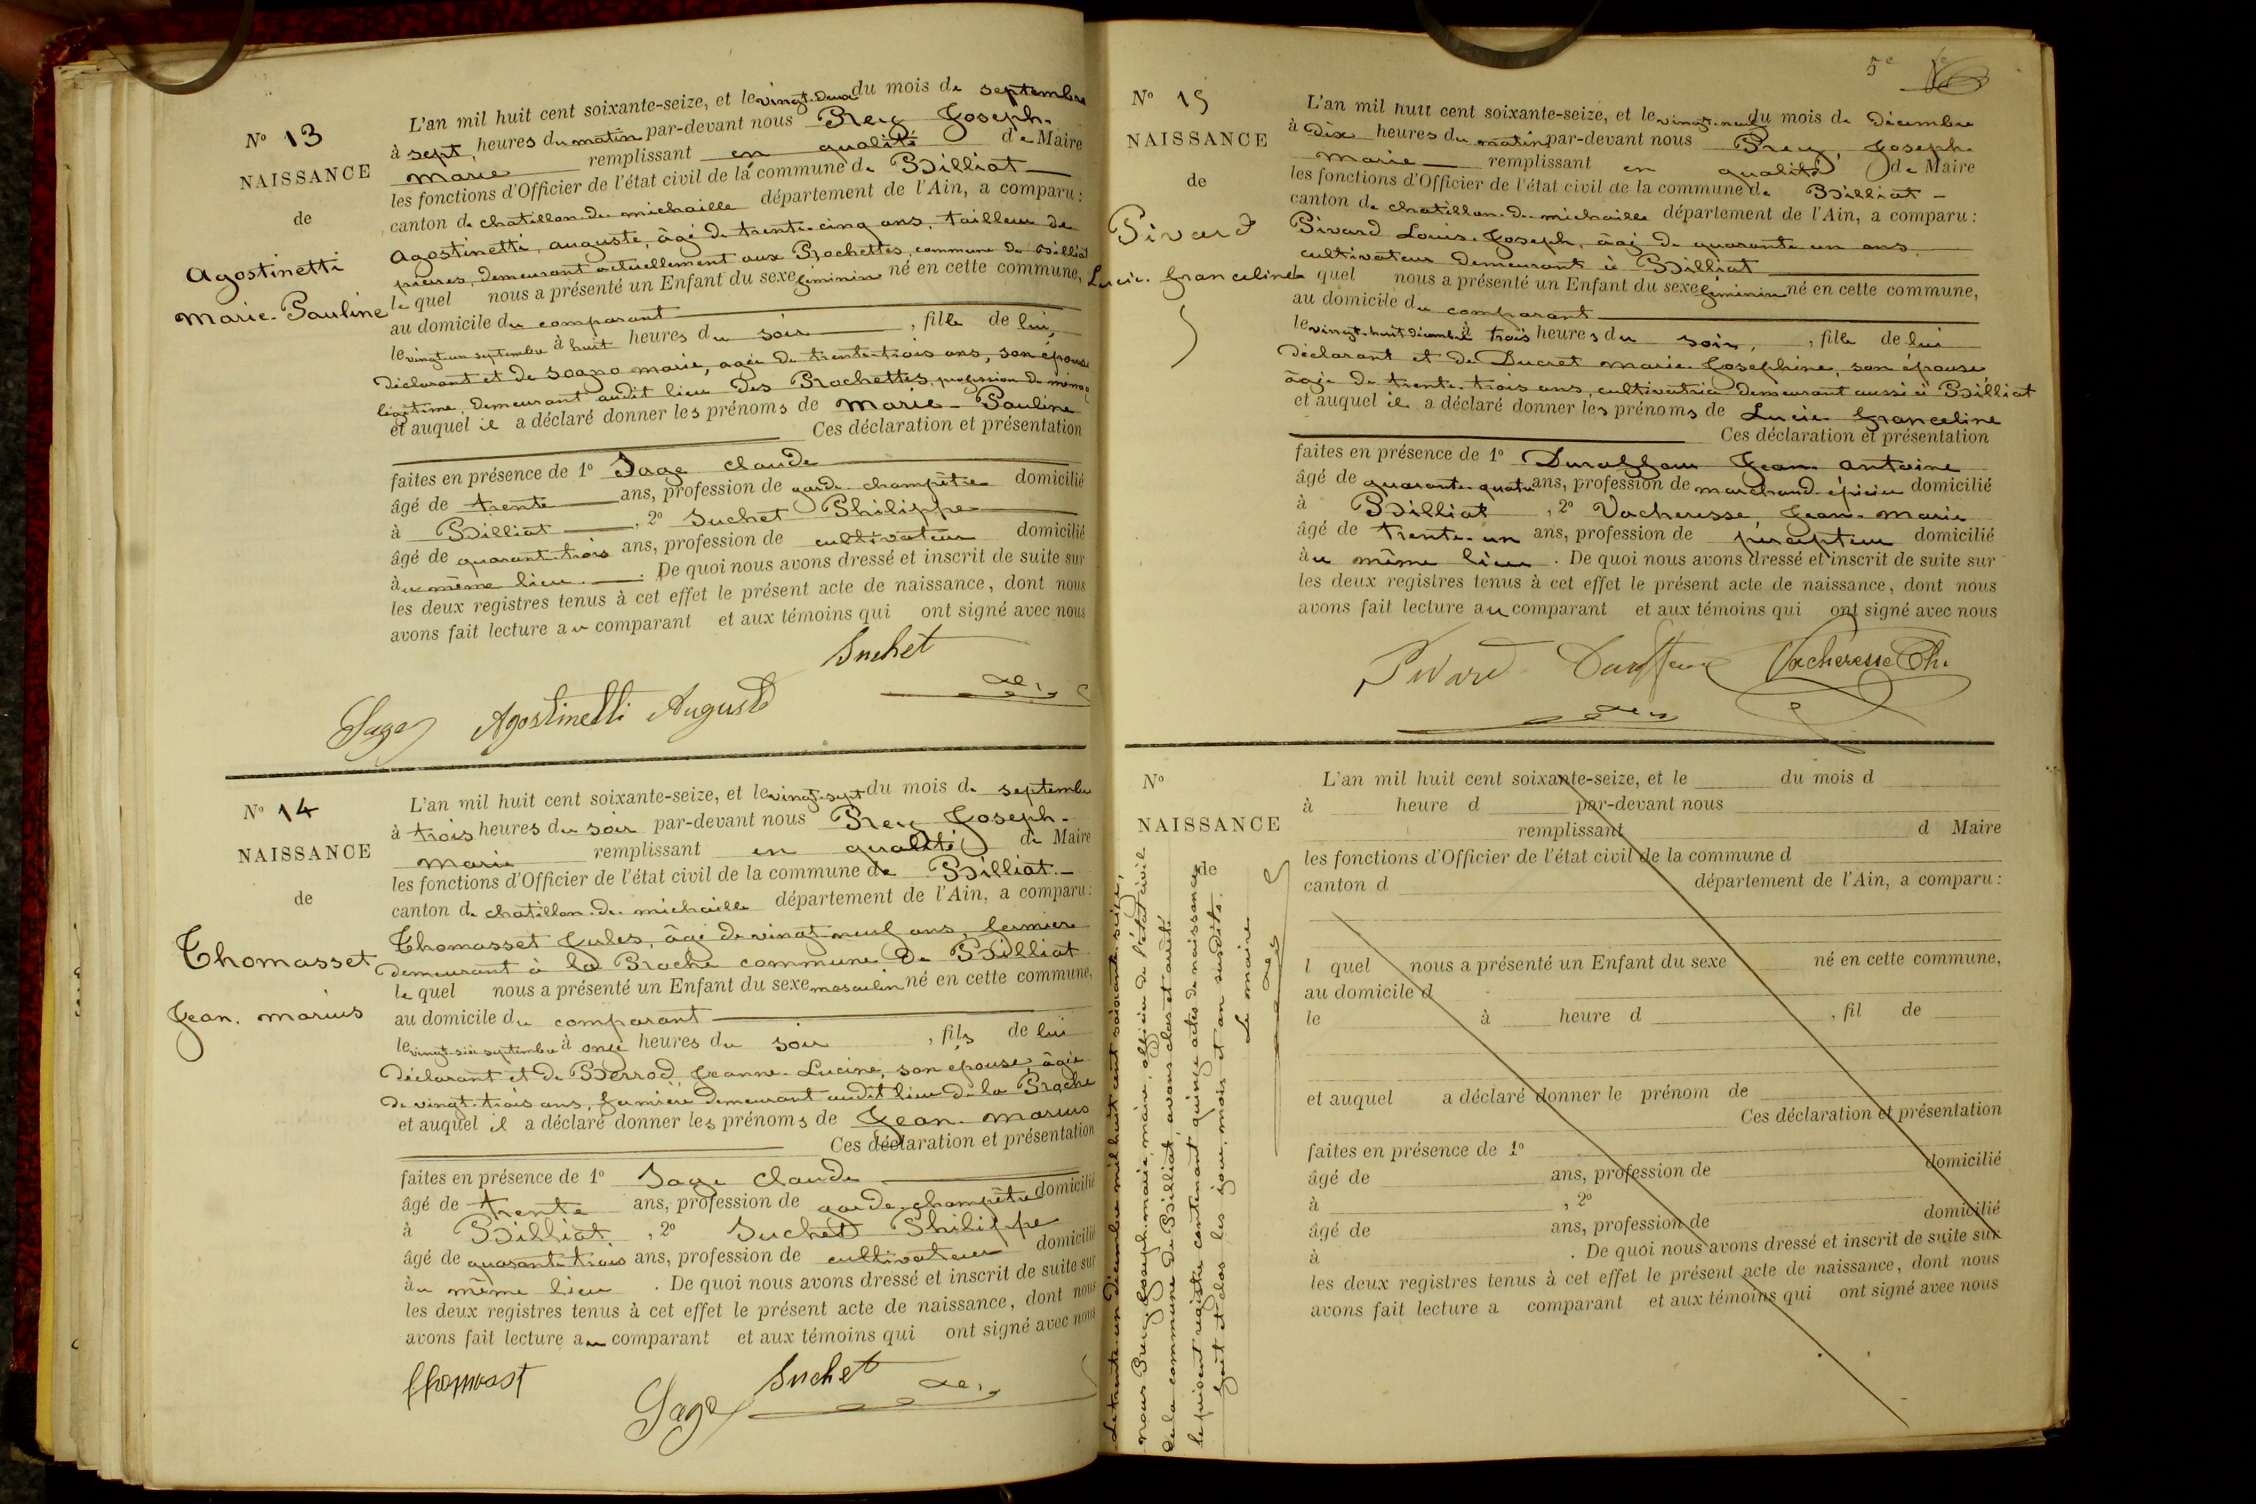 N° 13
NAISSANCE
de
Agostinetti
Marie-Pauline
L'an mil huit cent soixante-seize, et le vingt-deux du mois de septembre
à sept heures du matin par-devant nous Prey Joseph-
Marie remplissant en qualité de Maire
les fonctions d'Officier de l'état civil de la commune de Billiat
canton de chatillon-de-michaille département de l'Ain, a comparu :
Agostinetti, auguste, âgé de trente-cinq ans, tailleur de
pierres, demeurant actuellement aux Rochettes, commune de Billiat
le quel nous a présenté un Enfant du sexe féminin né en cette commune,
au domicile du comparant
le vingt-un septembre à huit heures du soir, fille de lui,
déclarant et de Sogno marie, agée de trente-trois ans, son épouse
légitime, demeurant audit lieu des Rochettes, profession de
et auquel il a déclaré donner les prénoms de Marie-Pauline
Ces déclaration et présentation
faites en présence de 1° Sage claude
âgé de trente ans, profession de garde-champêtre domicilié
à Billiat, 2° Suchet Philippe
âgé de quarante-trois ans, profession de cultivateur domicilié
au même lieu. De quoi nous avons dressé et inscrit de suite sur
les deux registres tenus à cet effet le présent acte de naissance, dont nous
avons fait lecture au comparant et aux témoins qui ont signé avec nous
Suchet
Sage Agostinetti Auguste
N° 14
NAISSANCE
de
Thomasset
Jean-marius
L'an mil huit cent soixante-seize, et le vingt-sept du mois de septembre
à trois heures du soir par-devant nous Prey Joseph-
marie remplissant en qualité de Maire
les fonctions d'Officier de l'état civil de la commune de Billiat-
canton de chatillon-de-michaille département de l'Ain, a comparu :
Thomasset Jules, âgé de vingt-neuf ans, fermier
demeurant à la Brache commune de Billiat
le quel nous a présenté un Enfant du sexe masculin né en cette commune,
au domicile du comparant
le vingt-six septembre à onze heures du soir, fils de lui
déclarant et de Berrod, Jeanne-Lucine, son épouse, âgée
de vingt-trois ans, fermière demeurant audit lieu de la Brache
et auquel il a déclaré donner les prénoms de Jean-Marius
Ces déclaration et présentation
faites en présence de 1° Sage Claude
âgé de trente ans, profession de garde-champêtre domicilié
à Billiat, 2° Suchet Philippe
âgé de quarante-trois ans, profession de cultivateur domicilié
au même lieu. De quoi nous avons dressé et inscrit de suite sur
les deux registres tenus à cet effet le présent acte de naissance, dont nous
avons fait lecture au comparant et aux témoins qui ont signé avec nous
Suchet
Sage
5e
N° 15
NAISSANCE
de
Pivard
Lucie-franceline
L'an mil huit cent soixante-seize, et le vingt-neuf du mois de décembre
à dix heures du matin par-devant nous Prey, Joseph-
Marie remplissant en qualité de Maire
les fonctions d'Officier de l'état civil de la commune de Billiat-
canton de chatillon-de-michaille département de l'Ain, a comparu :
Pivard Louis-Joseph, âgé de quarante un ans
cultivateur demeurant à Billiat
le quel nous a présenté un Enfant du sexe féminin né en cette commune,
au domicile du comparant
le vingt-huit décembre à trois heures du soir, fille de lui
déclarant et de Ducret marie-Josephine, son épouse
âgée de trente-trois ans, cultivatrice demeurant aussi à Billiat
et auquel il a déclaré donner les prénoms de Lucie franceline
Ces déclaration et présentation
faites en présence de 1° Duraffour Jean-antoine
âgé de quarante-quatre ans, profession de marchand-épicier domicilié
à Billiat, 2° Vacheresse, Jean-Marie
âgé de trente-un ans, profession de percepteur domicilié
au même lieu. De quoi nous avons dressé et inscrit de suite sur
les deux registres tenus à cet effet le présent acte de naissance, dont nous
avons fait lecture au comparant et aux témoins qui ont signé avec nous
Pivard Duraffour Vacheresse
N°
NAISSANCE
de
Le trente-un décembre mil huit cent soixante-seize,
nous Prey, Joseph-marie, maire, officier de l'état civil
de la commune de Billiat, avons clos et arrêté
le présent registre contenant quinze actes de naissances
fait et clos les jour, mois et an susdits.
Le maire
L'an mil huit cent soixante-seize, et le du mois d
à heure d par-devant nous
remplissant d Maire
les fonctions d'Officier de l'état civil de la commune d
canton d département de l'Ain, a comparu :
l quel nous a présenté un Enfant du sexe né en cette commune,
au domicile d
le à heure d , fil de
et auquel a déclaré donner le prénom de
Ces déclaration et présentation
faites en présence de 1°
âgé de ans, profession de domicilié
à , 2°
âgé de ans, profession de domicilié
à . De quoi nous avons dressé et inscrit de suite sur
les deux registres tenus à cet effet le présent acte de naissance, dont nous
avons fait lecture a comparant et aux témoins qui ont signé avec nous